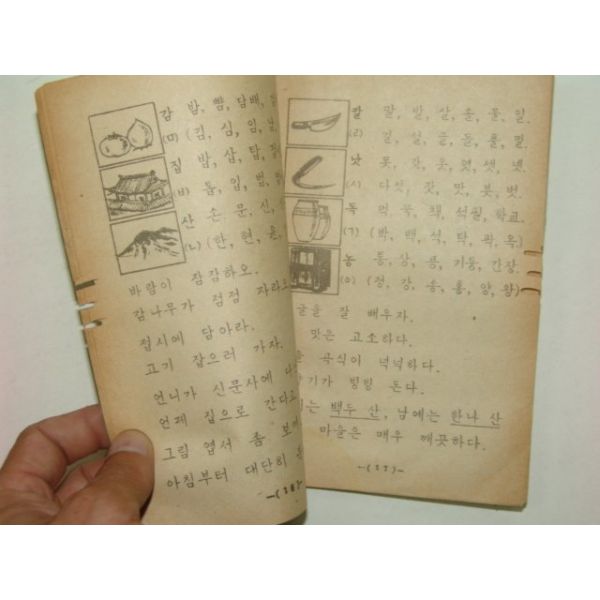 감 밥, 뺨, 담배,
(ㅁ) (김, 심, 임,
집 밥, 삽, 탑,
(ㅂ) 돕, 입, 법,
산 손, 문, 신,
(ㄴ) (한, 현, 윤,
바람이 잠잠하오.
감나무가 점점 자라
접시에 담아라.
고기 잡으러 가자.
언니가 신문사에
언제 집으로 간다고
그림 엽서 좀 보
아침부터 대단히
칼 말, 발, 살, 솔, 물, 일.
(ㄹ) 길, 설, 글, 돌, 풀, 팔.
낫 못, 갓, 옷, 엿, 셋, 넷.
(ㅅ) 다섯, 잣, 맛, 붓, 벗.
독 먹, 목, 책, 석필, 학교.
(ㄱ) (박, 백, 석, 탁, 곽, 옥)
농 통, 상, 콩, 기둥, 간장.
(ㅇ) (정, 강, 송, 홍, 양, 왕)
글을 잘 배우자.
맛은 고소하다.
곡식이 넉넉하다.
기가 빙빙 돈다.
는 백두 산, 남에는 한나 산
마을은 매우 깨끗하다.